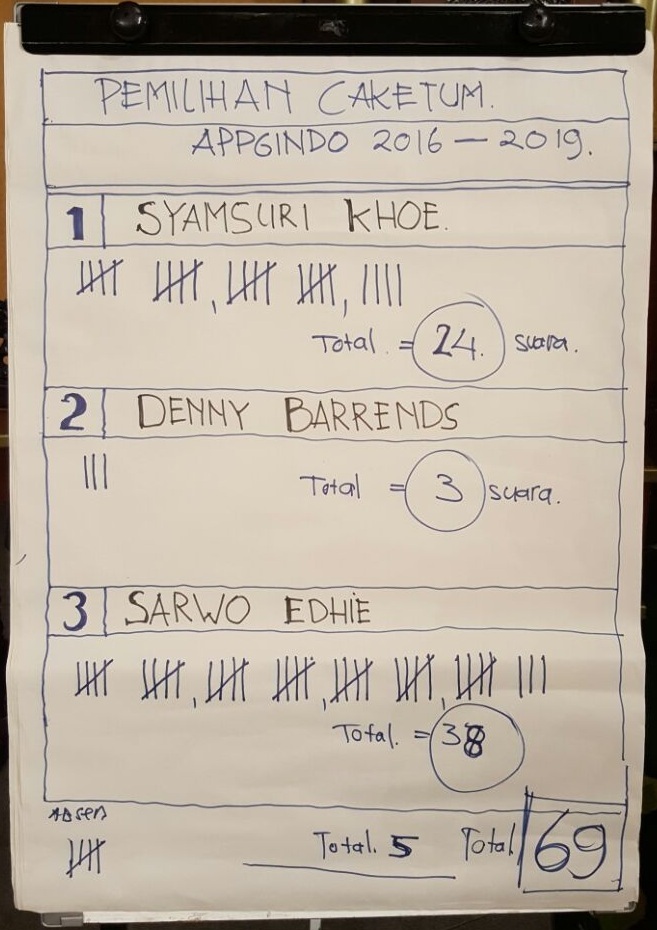 PEMILIHAN CAKETUM.
APPGINDO 2016 — 2019.
1 SYAMSURI KHOE.
Total. = 24. suara.
2 DENNY BARRENDS
Total = 3 suara.
3 SARWO EDHIE
Total. = 38
ABSEN
Total. 5 Total 69